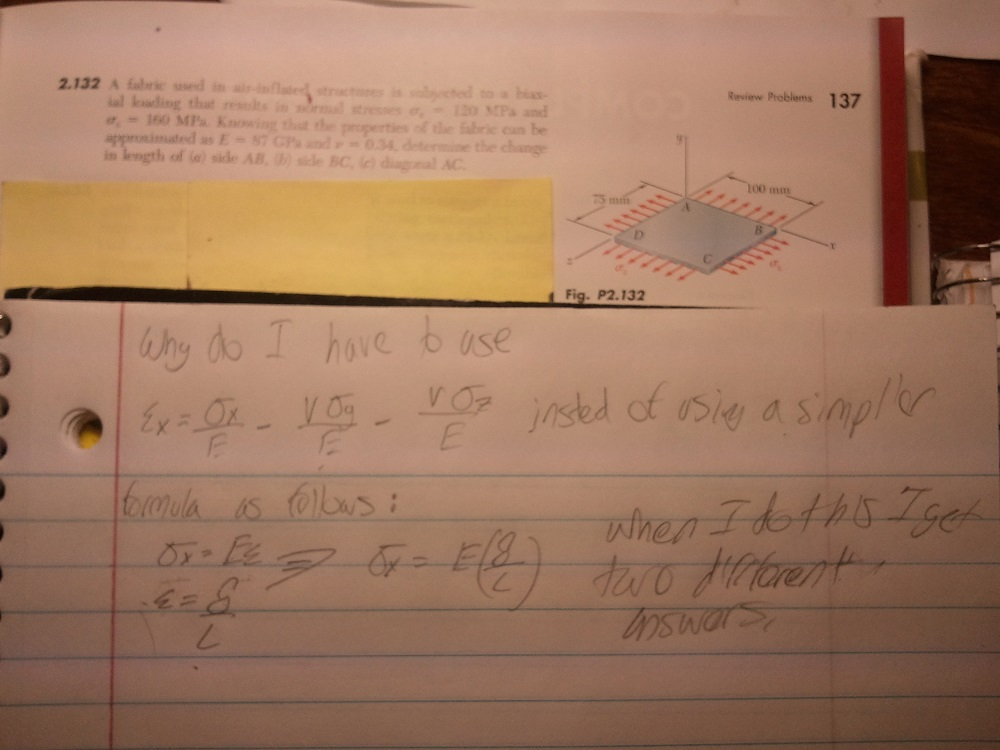 2.132 A fabric used in air-inflated structures is subjected to a biax-
ial loading that results in normal stresses σx = 120 MPa and
σz = 160 MPa. Knowing that the properties of the fabric can be
approximated as E = 87 GPa and ν = 0.34, determine the change
in length of (a) side AB, (b) side BC, (c) diagonal AC.
Review Problems 137
y
75 mm
100 mm
A
D
B
C
z
x
σz
σx
Fig. P2.132
Why do I have to use
εx = σx/E - νσy/E - νσz/E insted of using a simpler
formula as follows:
σx = Eε ⇒ σx = E(δ/L)
ε = δ/L
when I do this I get
two different
answers.